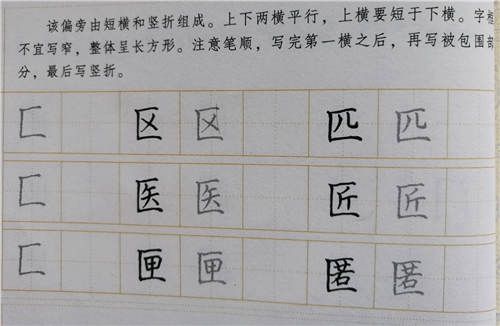 该偏旁由短横和竖折组成。上下两横平行，上横要短于下横。字
不宜写窄，整体呈长方形。注意笔顺，写完第一横之后，再写被包围部
分，最后写竖折。
匚 区 区 匹 匹
匚 医 医 匠 匠
匚 匣 匣 匿 匿